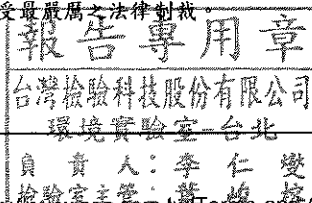 受最嚴厲之法律制裁。
報告專用章
台灣檢驗科技股份有限公司
環境實驗室-台北
負責人：李仁燮
檢驗室主管：